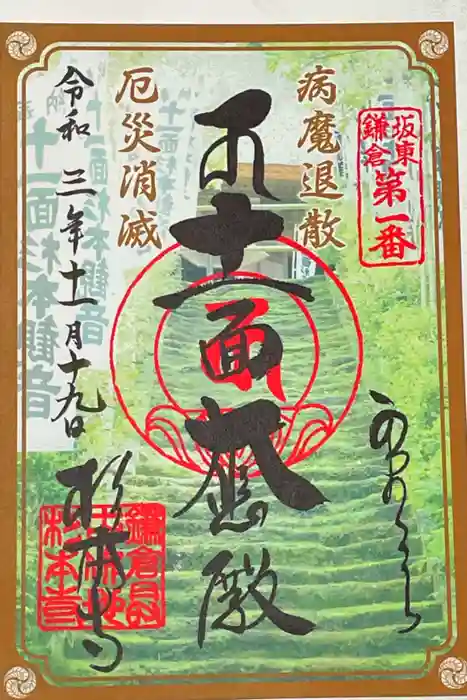 坂東
鎌倉
第一番
病魔退散
十一面大悲殿
厄災消滅
令和三年十一月十九日
杉本寺
十一面杉本観音
十一面杉本観音